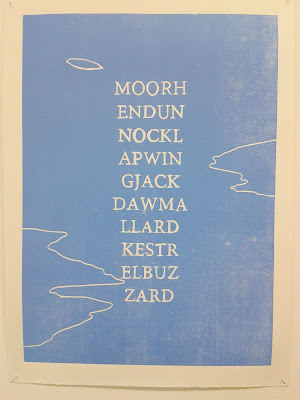 MOORH
ENDUN
NOCKL
APWIN
GJACK
DAWMA
LLARD
KESTR
ELBUZ
ZARD